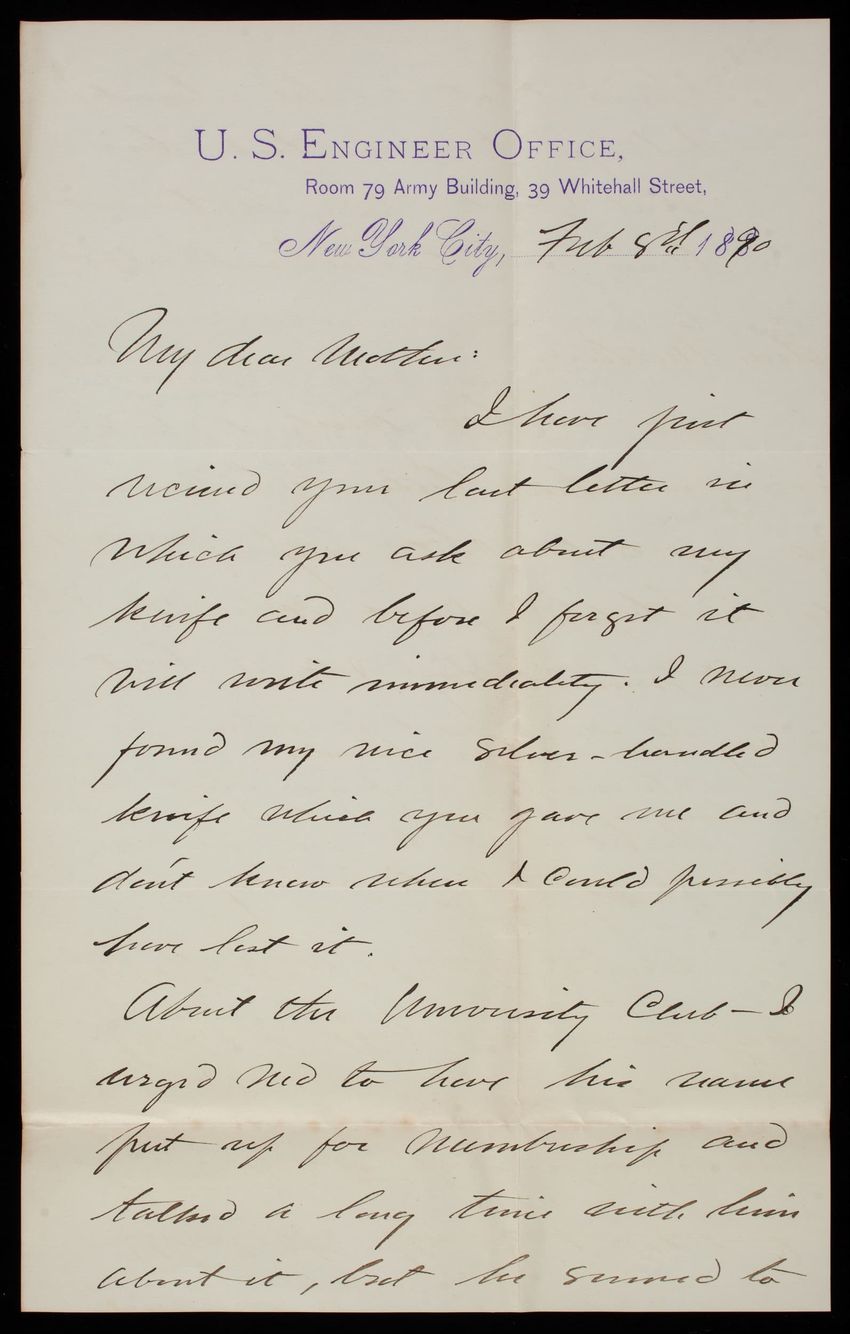 U. S. Engineer Office,
Room 79 Army Building, 39 Whitehall Street,
New York City, Feb 8th 1890
My dear Mother:
I have just
recieved your last letter in
which you ask about my
knife and before I forget it
will write immediately. I never
found my nice silver-handled
knife which you gave me and
don't know where I could possibly
have lost it.
About the University Club - I
urged Ned to have his name
put up for membership and
talked a long time with him
about it, but he seemed to